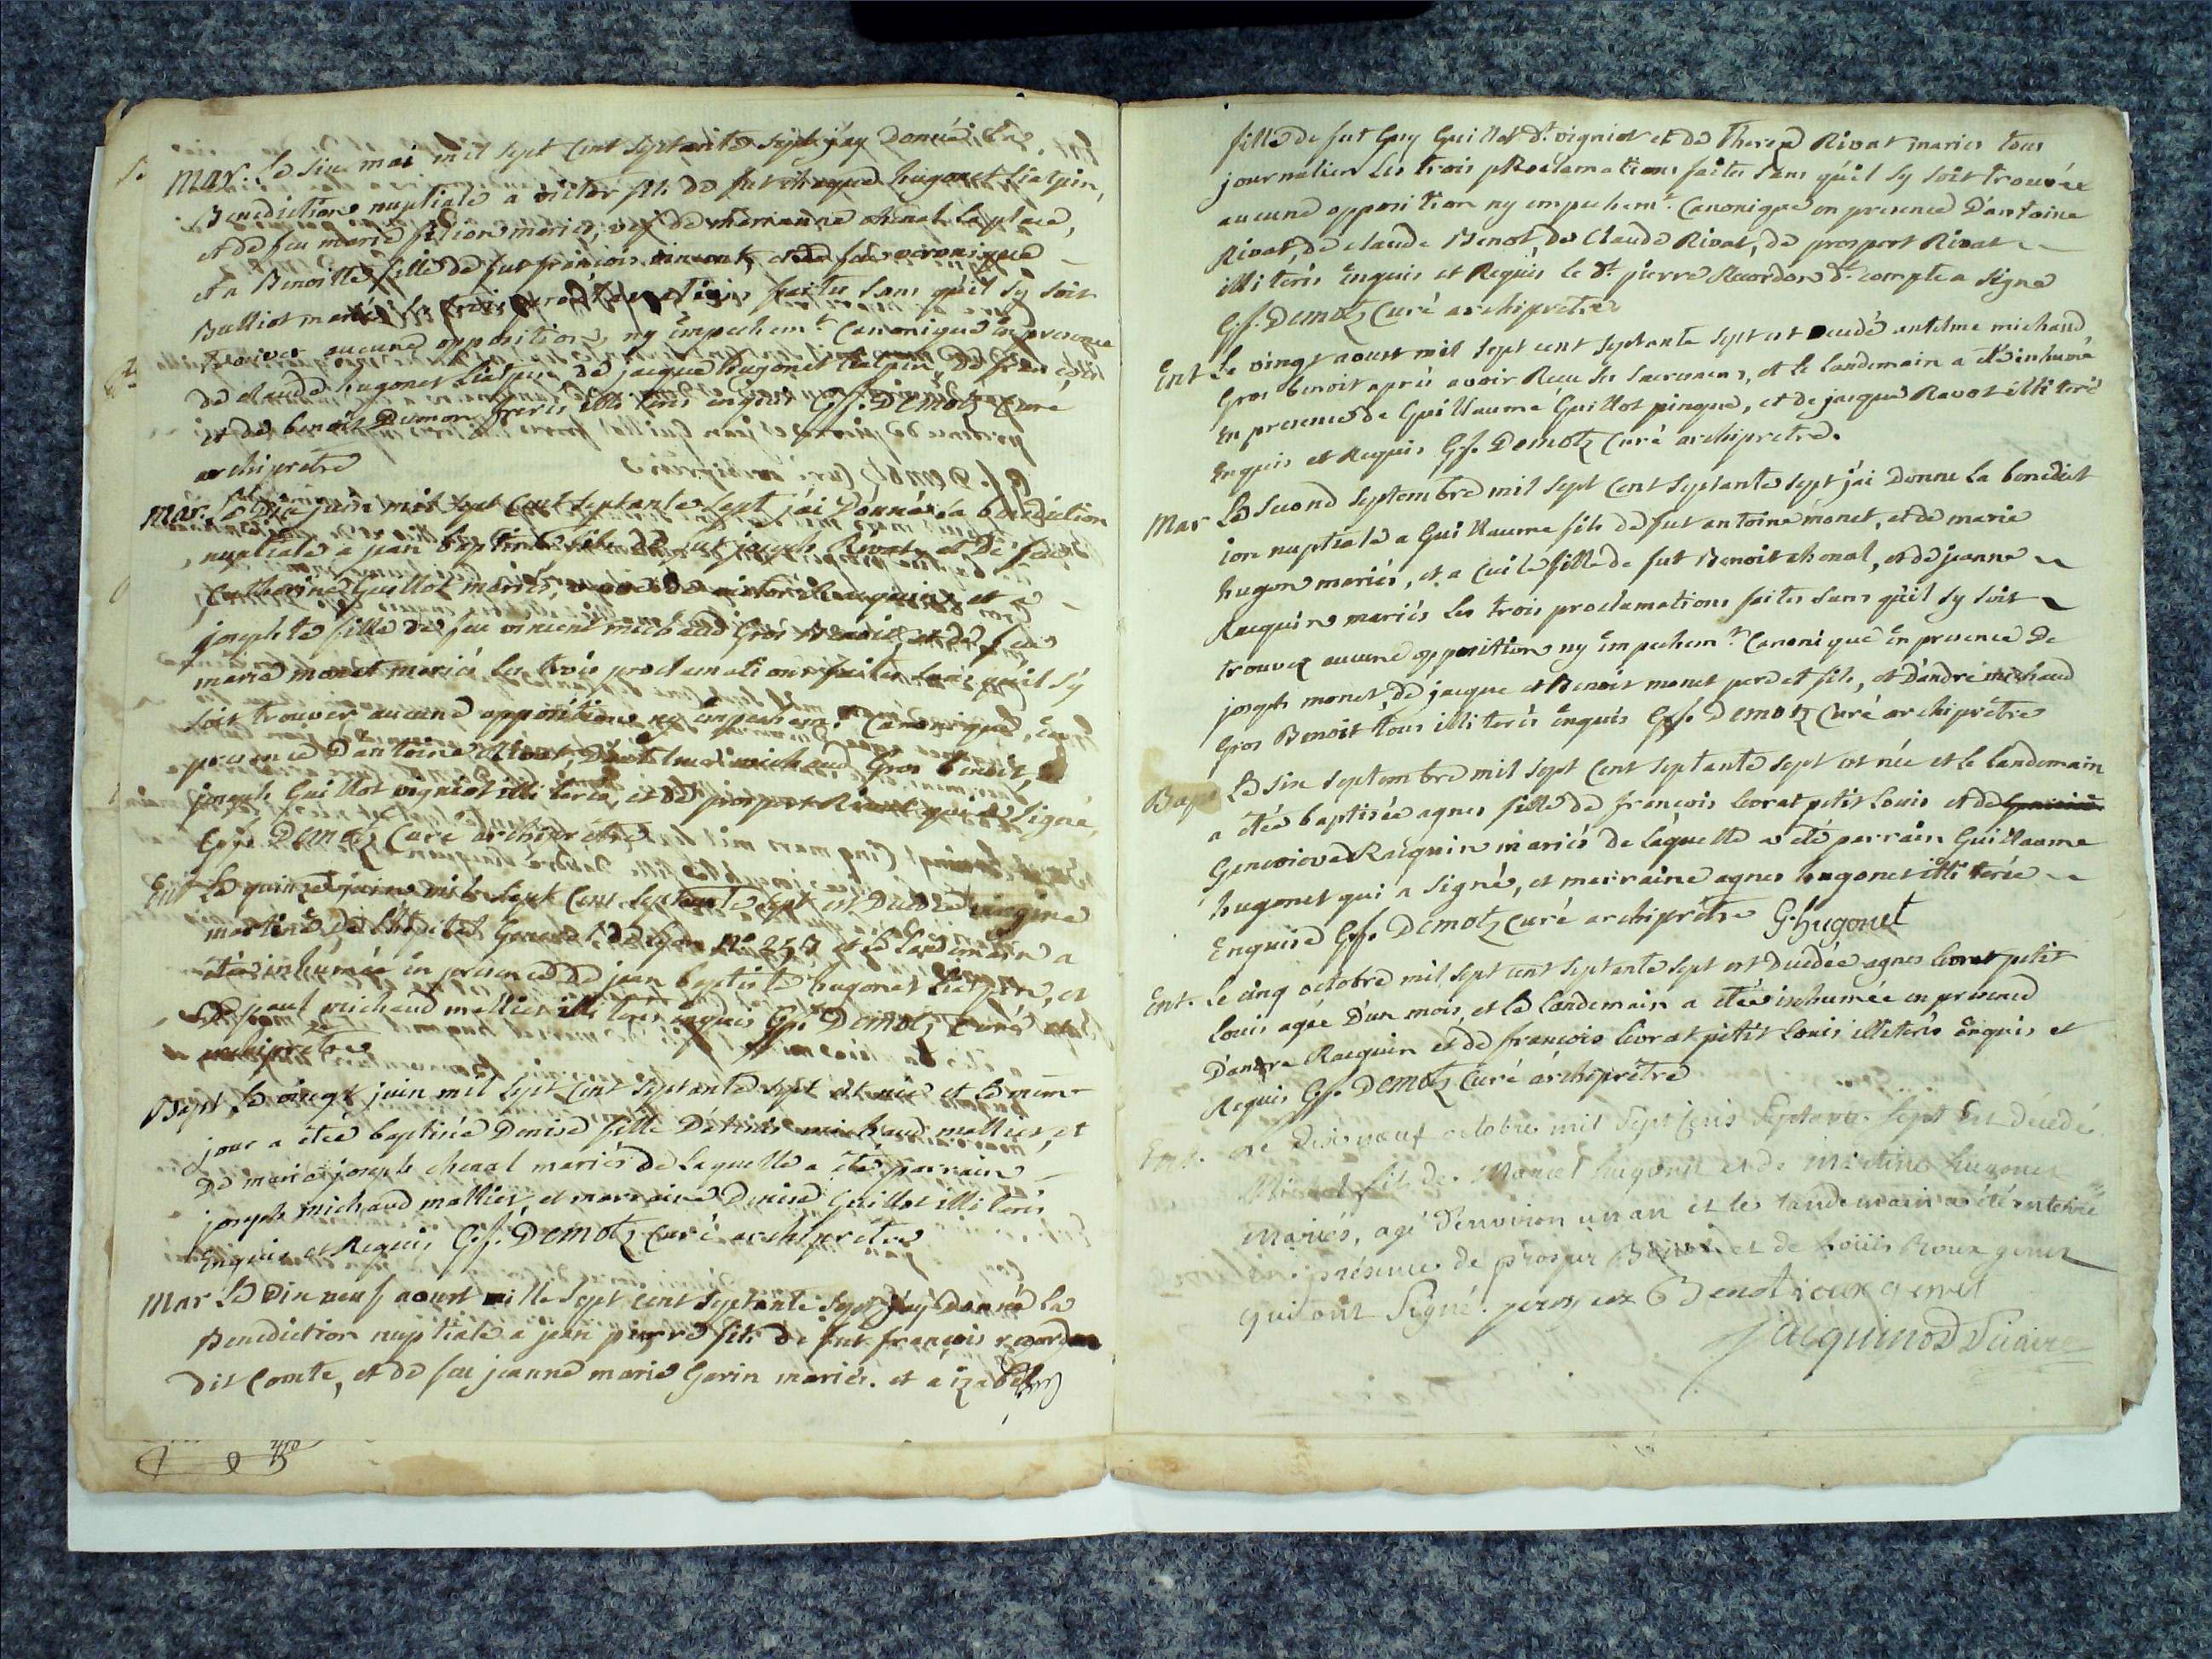 Mar. Le six mai mil sept cent septante sept j'ay donné la
Benediction nuptiale a victor fils de fut jacque hugonet Lialpin,
et de feu marie filion mariés, vef de marianne chenal la place,
et a Benoitte fille de fut francois vincent, et de feu veronique
Bulliot mariés les trois proclamations faites sans qu'il sy soit
trouver aucune opposition, ny empechemt. Canonique en presence
de claude hugonet Lialpin de jacque hugonet Lialpin, de
et de benoit Dumon freres illi terés enquis Gf. Demotz Curé
archiprêtre
Mar. Le dix juin mil sept cent septante sept j'ai Donné la benediction
nuptiale a jean baptiste fils de fut joseph Rivat, et De feue
Catherine Guillot mariés, et a
josephte fille de feu vincent michaud Gros Benoit, et de feue
marie monet mariés les trois proclamations faites sans qu'il s'y
soit trouver aucune opposition ny empechem. Canonique, en
presence D'antoine Rivat, D'antelme michaud Gros benoit, de
joseph Guillot vigniot illi terés, et de prospert Rivat qui a Signé,
Gf. Demotz Curé archiprêtre
Ent Le quinze juin mil sept cent septante sept est Decedée virgine
martine de l'hopital General de lyon No. et le landemain a
étée inhumée en presence de jean baptiste hugonet Lialpin, et
De paul michaud mallier illi terés enquis Gf. Demotz Curé
archiprêtre
Bapt Le vingt juin mil sept cent septante sept est née et le meme
jour a étée baptisée Denise fille D' michaud mallier, et
De marie joseph chenal mariés de laquelle a été parrain
joseph michaud mallier, et marraine Denise Guillot illi terés
Enquis et Requis Gf. Demotz Curé archiprêtre
Mar Le Dix neuf aoust mille sept cent septante sept j'ay Donné la
Benediction nuptiale a jean pierre fils de fut françois recordon
dit Comte, et de feu jeanne marie Gerin mariés. et a izabel
fille de fut Guy Guillot dt. vigniot et de Therese Rivat mariés tous
journalier les trois proclamations faites sans qu'il sy soit trouvée
aucune opposition ny empechemt. Canonique en presence D'antoine
Rivat, de claude Benot, de Claude Rivat, de prosport Rivat
illi terés Enquis et Requis le dt. pierre Recordon dt. compte a signé
Gf. Demotz Curé archiprêtre
Ent Le vingt aoust mil sept cent septante sept est decedé antelme michaud
Gros benoit apres avoir Recu les sacremens, et le landemain a été inhumé
En presence de Guillaume Guillot pinque, et de jacque Ravot illi teré
Enquis et Requis Gf. Demotz Curé archiprêtre.
Mar Le second septembre mil sept cent septante sept j'ai Donne la benedict
ion nuptiale a Guillaume fils de fut antoine monet, et de marie
hugon mariés, et a Cuile fille de fut Benoit chenal, et de jeanne
Racquin mariés les trois proclamations faites sans qu'il sy soit
trouver aucune opposition ny empechemt. Canonique en presence De
joseph monet, De jacque et Benoit monet pere et fils, et D'andré michaud
Gros Benoit tous illi terés enquis Gf. Demotz Curé archiprêtre
Bap Le six septembre mil sept cent septante sept est née et le landemain
a étée baptisée agnes fille de françois livrat petit Louis et de
Genevieve Racquin mariés de laquelle a été parrain Guillaume
hugonet qui a signé, et marraine agnes hugonet illi terée
Enquise Gf. Demotz Curé archiprêtre G. hugonet
Ent. Le cinq octobre mil sept cent septante sept est Decedée agnes livrat petit
Louis agée D'un mois, et le landemain a étée inhumée en presence
D'andre Racquin et de françois livrat petit Louis illeterés enquis et
Requis Gf. Demotz Curé archiprêtre
Ent. Le Dix neuf octobre mil Sept Cens Septante Sept Est décédé
fils de Marcet hugonet et de Martine hugonet
mariés, agé d'environ un an et le landemain a été enterré
en présence de prosper Benot et de Louis Roux genet
qui ont Signé. Benot roux genet
Jacquinod Vicaire